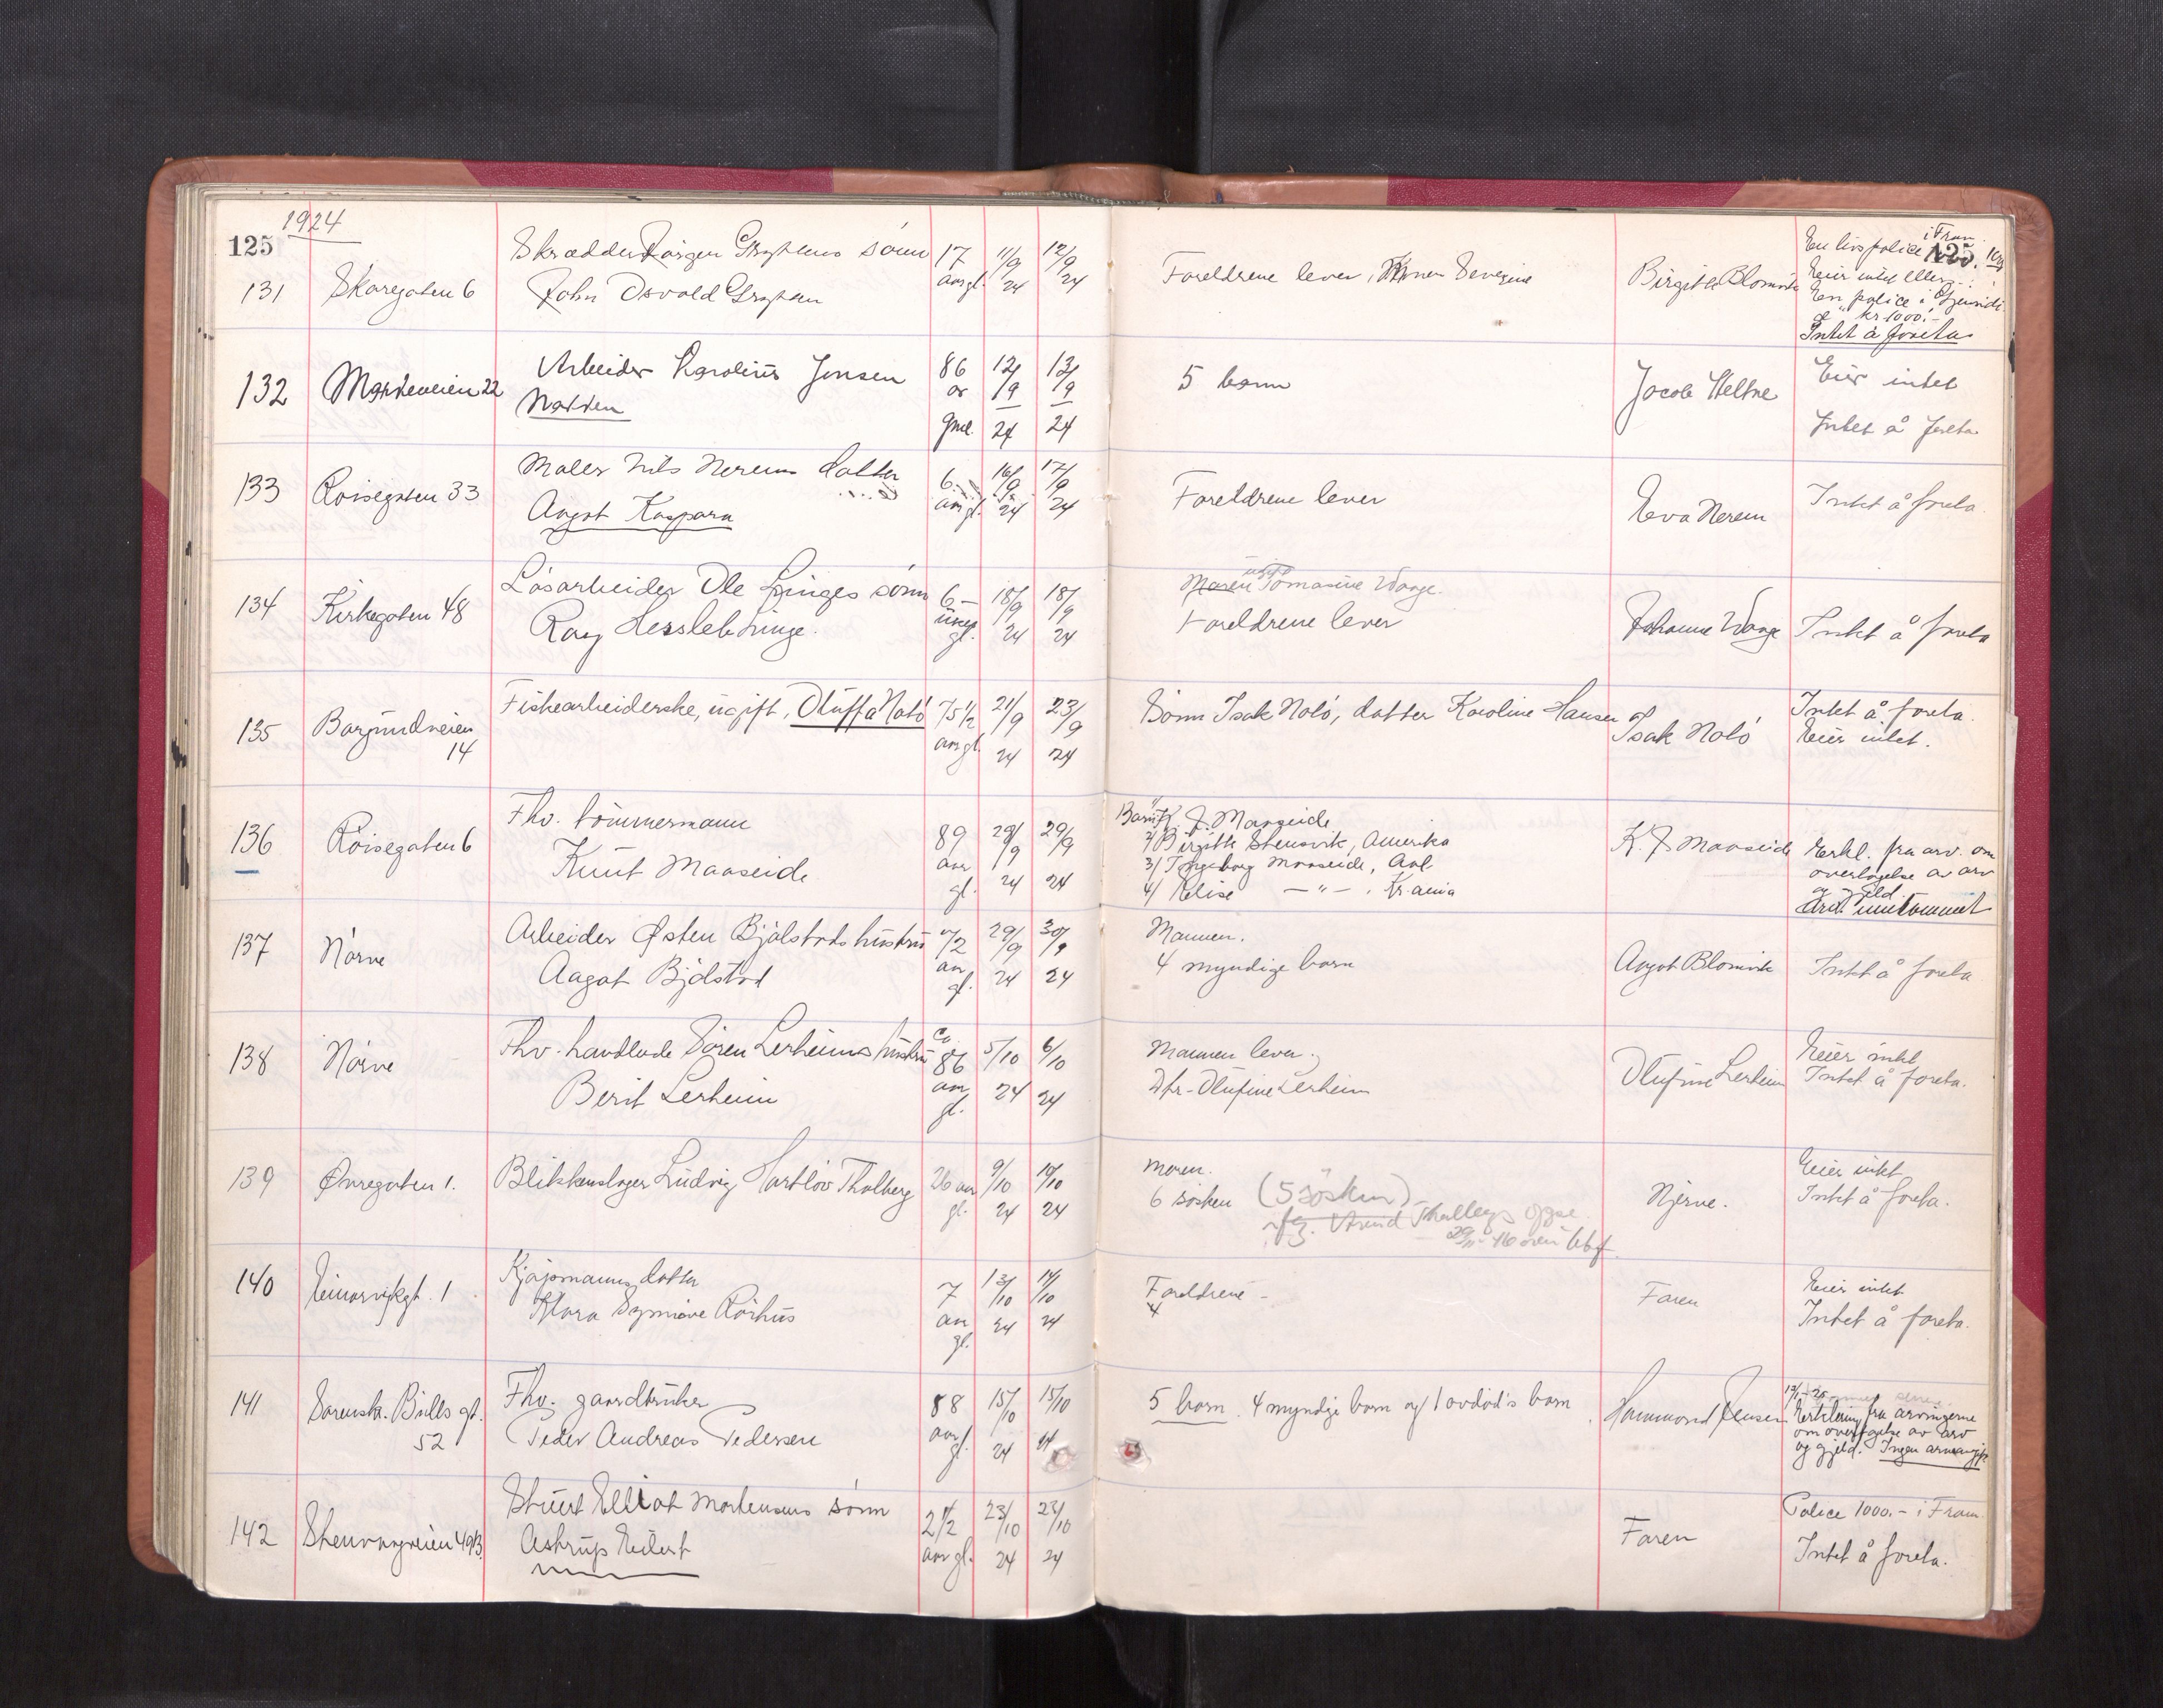 1924
125
125.
131 Skaregaten 6
Skrædder Jörgen Grytens sönn
John Osvald Gryten
17 aar gl.
11/9 24
12/9 24
Foreldrene lever, Severine
Birgitte Blomvik
En livspolice i Fram
Eier intet eller
En police i
kr 1000.-
Intet å foreta
132
22
Arbeider Karolius Jensen
Nakken
86 år gml.
12/9 24
13/9 24
5 barn
Jacob Heltne
Eier intet
Intet å foreta
133 Röisegaten 33
Maler Nils Nerems datter
Aagot Kaspara
6
16/9 24
17/9 24
Foreldrene lever
Eva Nerem
Intet å foreta
134 Kirkegaten 48
Lösarbeider Ole Linges sönn
Roay Hersleb Linge.
6 uker gl.
18/9 24
18/9 24
ugift
Maren Tomasine Vaage.
Foreldrene lever
Johanne Vaage
Intet å foreta
135 Borgundveien
14
Fiskearbeiderske, ugift, Oluffa Notö
75 1/2 aar gl.
21/9 24
23/9 24
Sönn Isak Notö, datter Karoline Hansen
Isak Notö
Intet å foreta.
Eier intet.
136 Röisegaten 6
Fhv. tömmermann
Knut Maaseide
89 aar gl.
29/9 24
29/9 24
Barn 1/ K. J. Maaseide
2/ Birgitte Stensvik, Amerika
3/ Ingeborg Maaseide, Aal
4/ Elise —"— , Kr.ania
K. J. Maaseide
Erkl. fra arv. om
overtagelse av arv
og gjeld.
innkommet
137 Nörve
Arbeider Østen Bjölstads hustru
Aagot Bjölstad
72 aar gl.
29/9 24
30/9 24
Mannen.
4 myndige barn
Aagot Blomvik
Intet å foreta
138 Nörve
Fhv. handlende Sören Lerheims hustru
Berit Lerheim
ca 86 aar gl.
5/10 24
6/10 24
Mannen lever.
Dtr. Olufine Lerheim
Olufine Lerheim
Eier intet
Intet å foreta.
139 Övregaten 1.
Blikkenslager Ludvig Hartlöv Tholberg
26 aar gl.
9/10 24
10/10 24
Moren.
6 sösken (5 sösken)
Njerve.
Eier intet
Intet å foreta.
140 Einarvikgt. 1
Kjöpmanns datter
Klara Synnöve Rörhus
7 aar gl.
13/10 24
14/10 24
Foreldrene -
4
Faren
Eier intet
Intet å foreta.
141 Sorensk. Bulls gt.
52
Fhv. gaardbruker
Peder Andreas Pedersen
88 aar gl.
15/10 24
15/10 24
5 barn. 4 myndige barn og 1 avdöd's barn
Hammond Jensen
Erklæring fra arvingerne
om overtagelse av arv
og gjeld. Ingen arveavgift
142 Stenvaagveien 49B.
Stuert Elliot Mortensens sönn
Astrup Eilert
2 1/2 aar gl.
23/10 24
23/10 24
Faren
Police 1000.- i Fram
Intet å foreta.